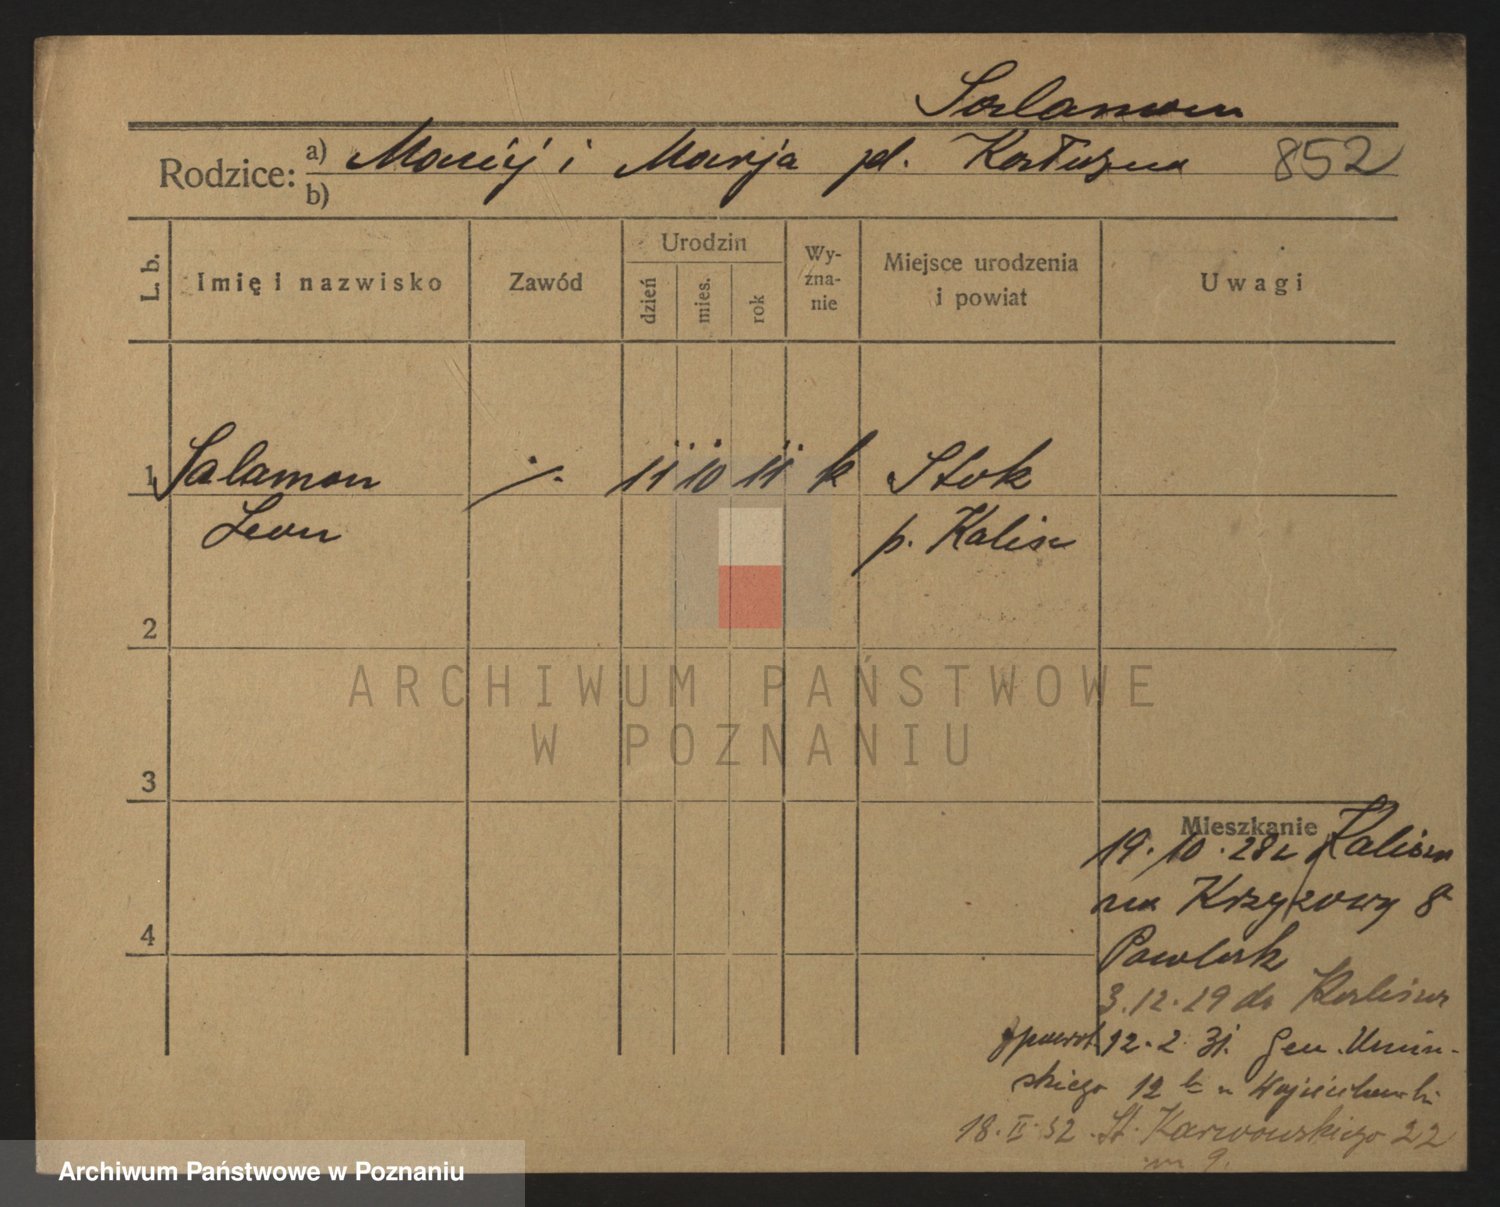 Salamon
Rodzice: a) Maciej i Marja zd.
b)
852
L. b.
Imię i nazwisko
Zawód
Urodzin
dzień
mies.
rok
Wy-
zna-
nie
Miejsce urodzenia
i powiat
Uwagi
1 Salamon ./. 11 10 11 k Stok
Leon p. Kalisz
2
3
4
ARCHIWUM PAŃSTWOWE
W POZNANIU
Mieszkanie
19.10.28 z Kalisza
na Krzyżowy 8
Pawlak
3.12.29 do Kalisza
z powrot. 12.2.31. Gen. Umiń-
skiego 12 u Wojciechowski
18.II.32. St. Karwowskiego 22
m 9.
Archiwum Państwowe w Poznaniu